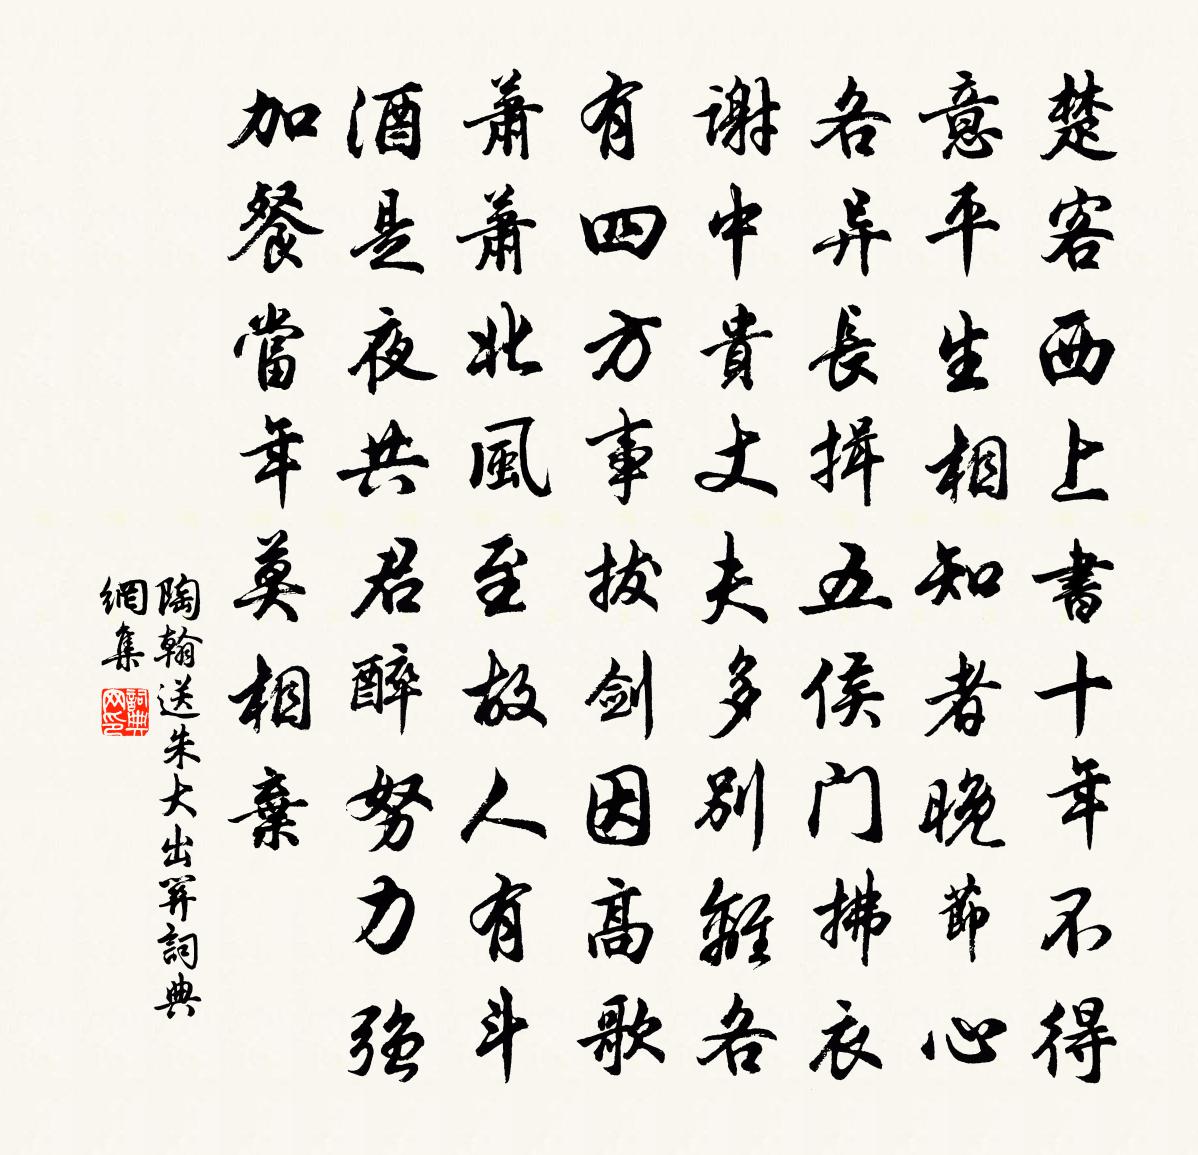 楚客西上書十年不得
意平生相知者晚節心
各异長揖五侯门拂衣
謝中貴丈夫多別離各
有四方事拔劍因高歌
蕭蕭北風至故人有斗
酒是夜共君醉努力強
加餐當年莫相棄
陶翰送朱大出關詞典
網集
詞典
网印